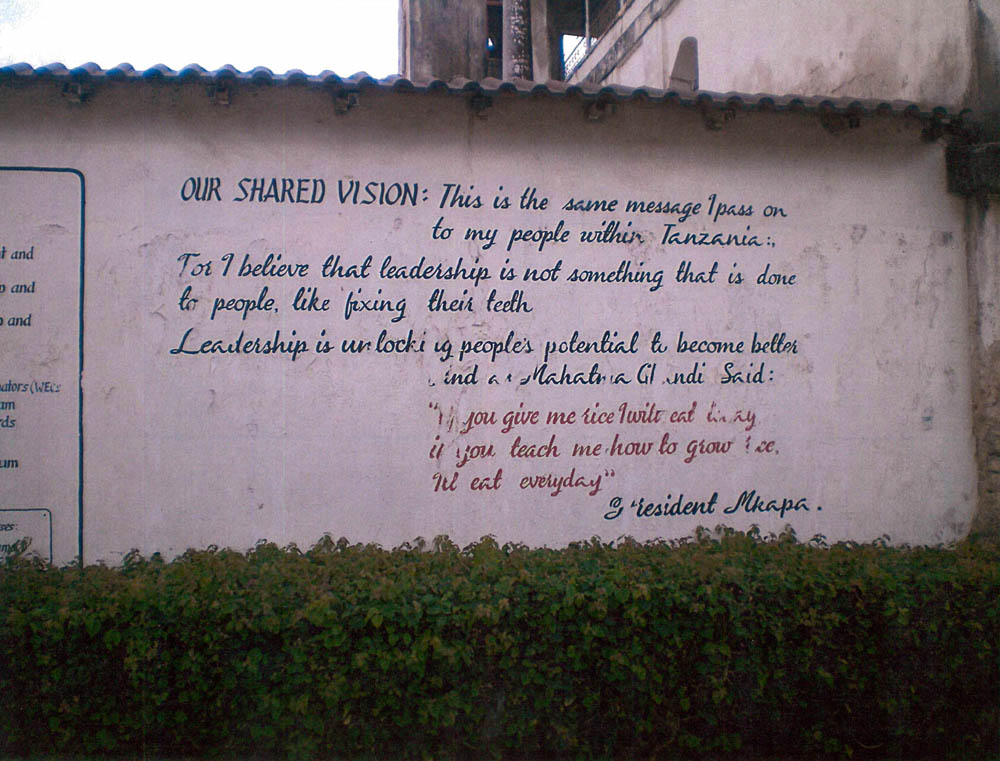 t and
p and
o and
nators (WECs
um
rds
um
ses:
OUR SHARED VISION: This is the same message I pass on
to my people within Tanzania:,
For I believe that leadership is not something that is done
to people, like fixing their teeth
Leadership is unlocking people's potential to become better
and as Mahatma Ghandi Said:
"If you give me rice I will eat today
if you teach me how to grow rice,
I'll eat everyday"
President Mkapa.